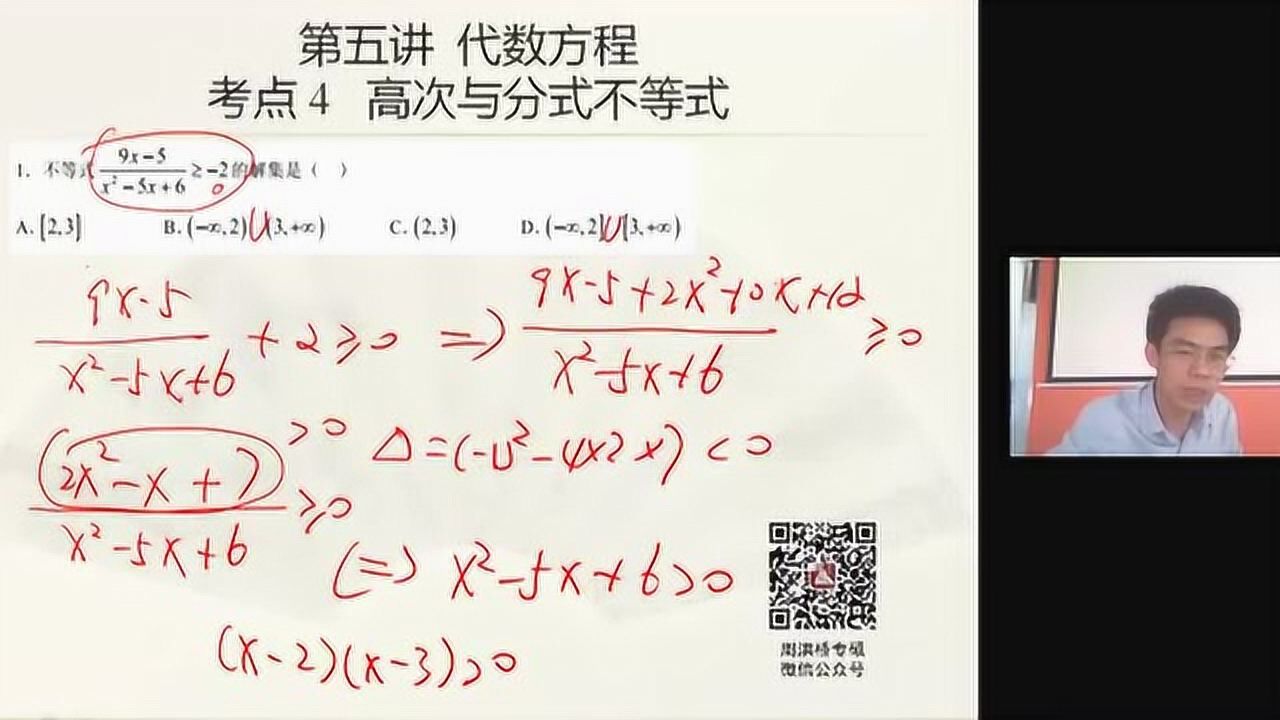 第五讲 代数方程
考点4 高次与分式不等式
1. 不等式 (9x-5)/(x²-5x+6) ≥ -2 的解集是（ ）
0
A. [2,3] B. (-∞,2)∪(3,+∞) C. (2,3) D. (-∞,2]∪[3,+∞)
(9x-5)/(x²-5x+6) + 2 ≥ 0 => (9x-5+2x²-10x+12)/(x²-5x+6) ≥ 0
(2x²-x+7)/(x²-5x+6) ≥ 0
>0 Δ=(-1)²-4×2×7<0
(=> x²-5x+6>0
(x-2)(x-3)>0
周洪桥专硕
微信公众号